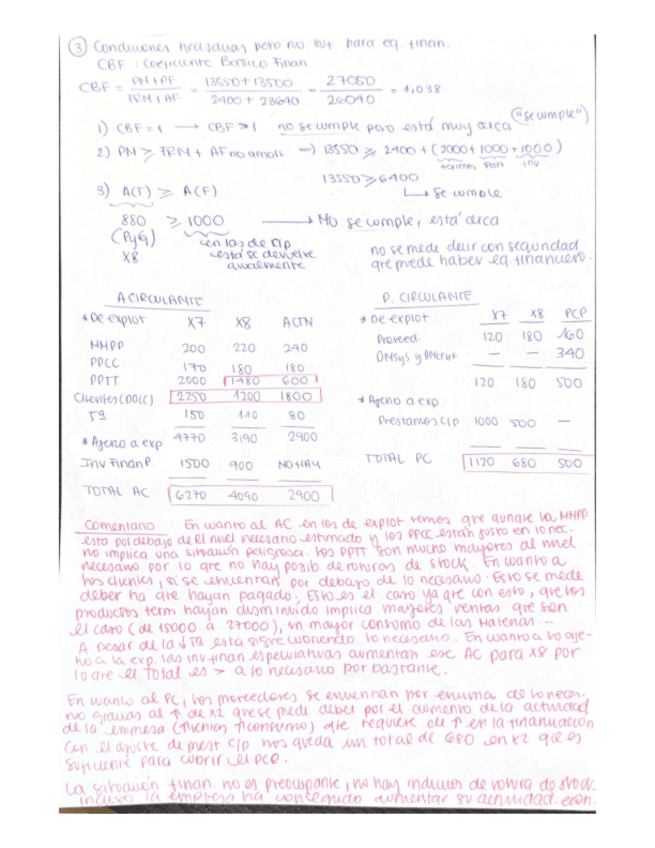 ③ Condiciones necesarias pero no suf para eq. finan.
CBF : Coeficiente Básico Finan
CBF = PN+PF / TRM+AF = 13550+13500 / 2400+23640 = 27050 / 26040 = 1,038
("se cumple")
1) CBF=1 → CBF>1 no se cumple pero está muy cerca
2) PN ≥ FRN + AF no amort → 13550 ≥ 2400 + (2000+1000+1000)
terrenos part inv
13550 ≥ 6400
↳ Se cumple
3) A(T) ≥ A(F)
880 ≥ 1000 → No se cumple, está cerca
(PyG) en las de C/p
X8 está se devuelve
anualmente
no se puede decir con seguridad
que puede haber eq. financiero.
A CIRCULANTE
* De explot X7 X8 ACTN
MMPP 200 220 240
PPCC 170 180 180
PPTT 2000 1480 600
Clientes (DDCC) 2250 1200 1800
Tª 150 110 80
4770 3190 2900
* Ajeno a exp
Inv Finan P. 1500 900 NO HAY
TOTAL AC 6270 4090 2900
P. CIRCULANTE
* De explot X7 X8 PCP
Proveed. 120 180 160
— — 340
120 180 500
* Ajeno a exp.
Prestamos C/p 1000 500 —
TOTAL PC 1120 680 500
Comentario : En cuanto al AC en los de explot vemos que aunque la MMPP
esta por debajo de el nivel necesario estimado y los PPCC están justo en lo nec.
no implica una situación peligrosa. Los PPTT son mucho mayores al nivel
necesario por lo que no hay posib de roturas de stock. En cuanto a
los clientes, si se encuentran por debajo de lo necesario. Esto se puede
deber ha que hayan pagado. Esto es el caso ya que con esto, que los
productos term hayan disminuido implica mayores ventas que son
el caso (de 15000 a 27000), un mayor consumo de las materias...
A pesar de la ↓Tª esta sigue cubriendo lo necesario. En cuanto a lo aje-
no a la exp. las inv finan especulativas aumentan ese AC para X8 por
lo que el total es > a lo necesario por bastante.
En cuanto al PC, los proveedores se encuentran por encima de lo necen.
no gracias al ↑ de X2 que se puede deber por el aumento de la actividad
de la empresa (↑ventas ↑consumo) que requiere el ↑ en la financiación
Con el ajuste de prest C/p nos queda un total de 680 en X2 que es
suficiente para cubrir el PCP.
La situación finan. no es preocupante, no hay indicios de rotura de stock.
incluso la empresa ha conseguido aumentar su actividad econ.